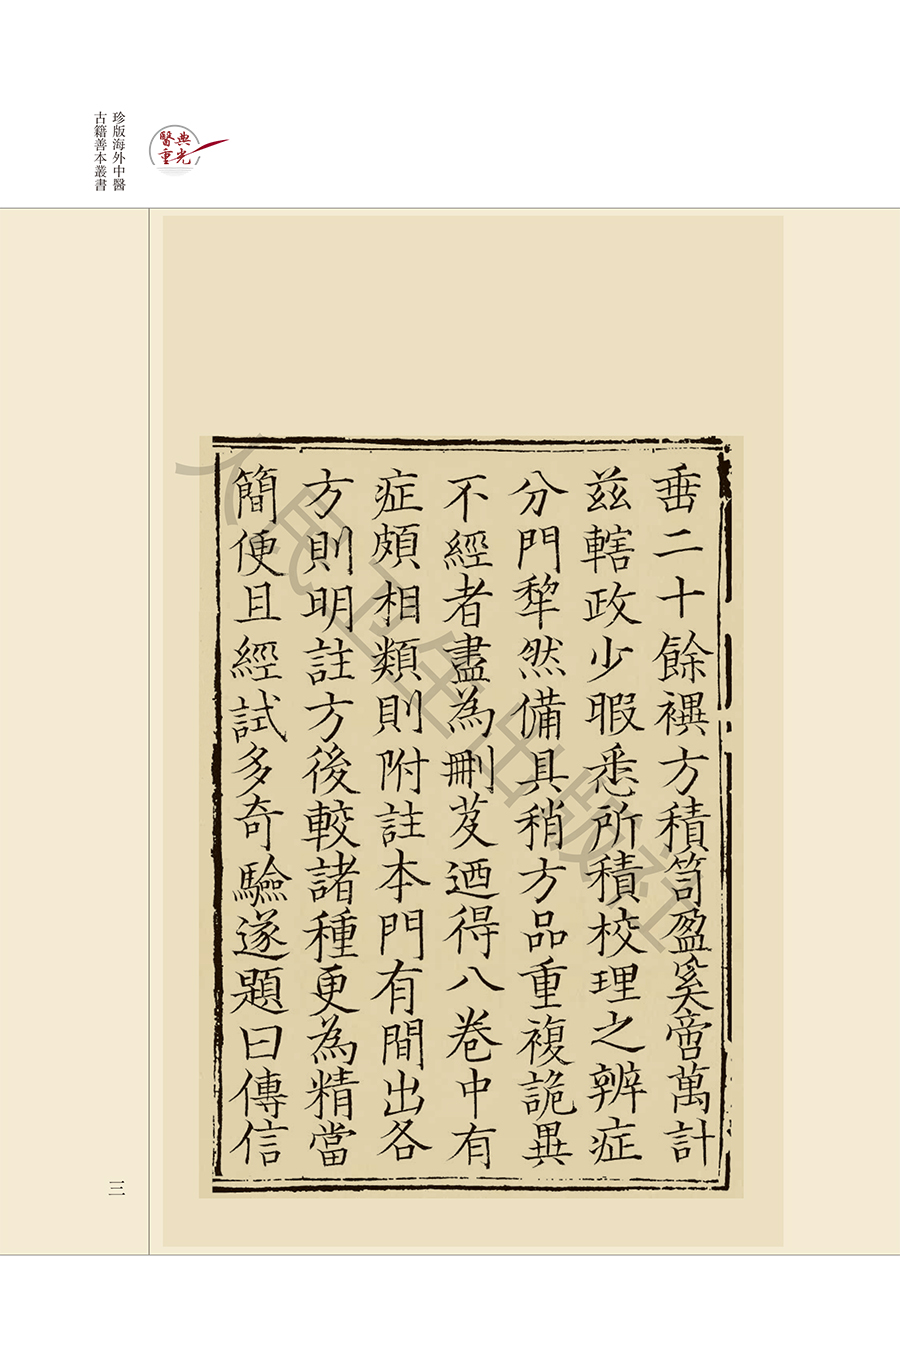 珍版海外中醫
古籍善本叢書
醫典重光
垂二十餘禩方積笥盈奚啻萬計
茲轄政少暇悉所積校理之辨症
分門犂然備具稍方品重複詭異
不經者盡為刪芟迺得八卷中有
症頗相類則附註本門有間出各
方則明註方後較諸種更為精當
簡便且經試多奇驗遂題曰傳信
三
人民卫生出版社